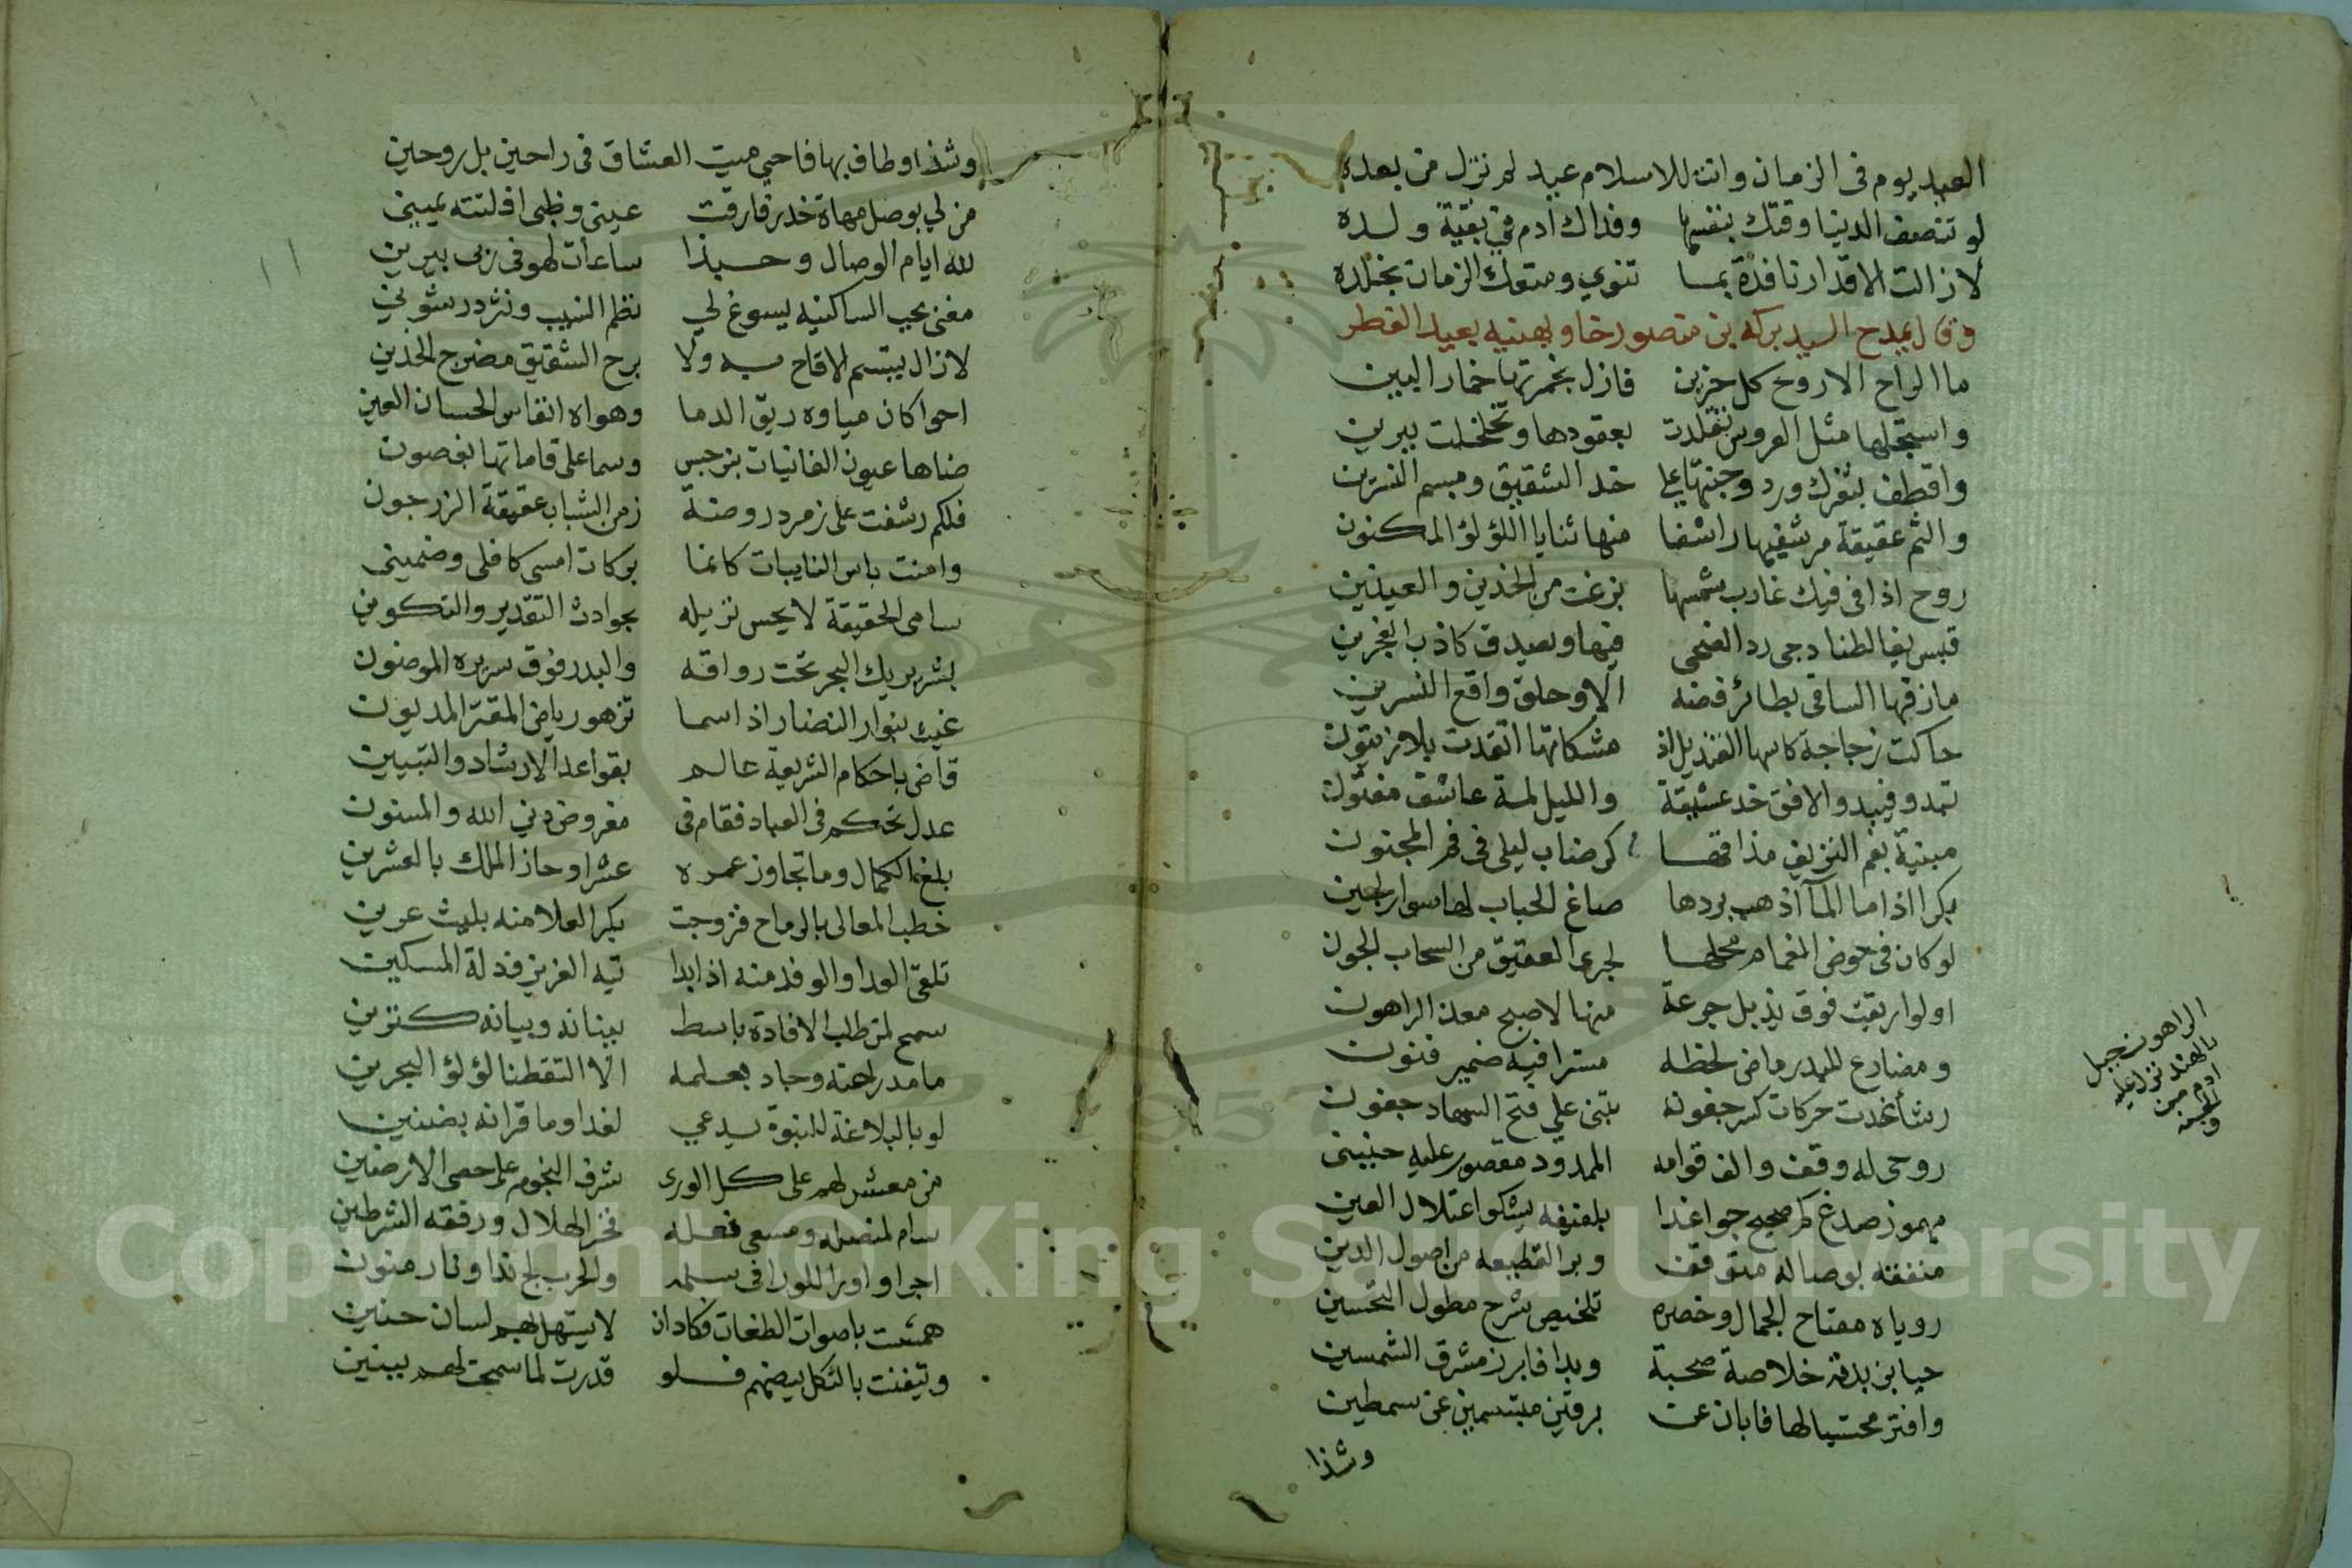 العيد يوم في الزمان وانت للاسلام عيد لم نزل من بعده
لو تنصف الدنيا وقتك بنفسها وفداك ادم في بقية ولده
لا زالت الاقدار نافذة بما تنوي ومتعك الزمان بخلده
وقال يمدح السيد بركه بن منصور خان ويهنيه بعيد الفطر
ما الراح الا روح كل حزين فازل بخمرتها خمار البين
واستجلها مثل العروس تقلدت بعقودها وتخلخلت ببرين
واقطف بثغرك ورد وجنتها علي خد الشقيق ومبسم النسرين
والثم عقيقة مرشفيها راشفا منها ثنايا اللؤلؤ المكنون
روح اذا في فيك غارب شمسها بزغت من الخدين والعينين
قبس يغالطنا دجى رد الضحى فيها ويصدق كاذب الفجرين
ما زفها الساقي بطائر فضه الا وحلق واقع النسرين
حاكت زجاجة كاسها القنديل اذ مشكاتها اتقدت بلا زيتون
تبدو فيبدو الافق خد عشيقة والليل لمة عاشق مفتون
مبنية بفم النزيف مذاقها كرضاب ليلى في فم المجنون
بكر اذا ما المآ اذهب بردها صاغ الحباب لها سوار لجين
لو كان في حوض الغمام محلها لجرى العقيق من السحاب الجون
او لو اريقت فوق يذبل جرعة منها لاصبح معدن الراهون
ومضارع للبدر ماضي لحظه مستترا فيه ضمير فنون
رشأ غدت حركات كسر جفونه تبنى علي فتح السهاد جفون
روحي له وقف والف قوامه الممدود مقصور عليه حنيني
مهموز صدغ كم صحيح جوا غدا بلفيفه يشكو اعتلال العين
متفقه بوصاله متوقف وير القطيعه من اصول الدين
روياه مفتاح الجمال وخصره تلخيص شرح مطول التحسين
حيا بنى بدنه خلاصة صحبة وبدا فابرز مشرق الشمسين
وافتر محتسيا لها فابان عن برقين مبتسمين عن سمطين
وشذا
الراهون جبل
بالهند نزل عليه
ادم من
الجنه
وشذا وطاف بها فاحيى ميت العشاق في راحين بل روحين
من لي بوصل مهاة خدر فارقت عيني وظبى افلتته يميني
لله ايام الوصال وحبذا ساعات لهو في ربى يبرين
مغنى بحب الساكنيه يسوغ لي نظم النسيب ونثر در شوني
لا زال يبتسم الاقاح به ولا برح الشقيق مضرج الخدين
احوا كان مياوه ريق الدما وهواه انفاس الحسان العين
ضاها عيون الغانيات بنرجس وسما على قاماتها بغصون
فلكم رشفت على زمرد روضة زمن الشباب عقيقة الزرجون
وامنت باس النايبات كانما بركات امسى كافلى وضميني
سامى الحقيقة لا يحس نزيله بحوادث التقدير والتكوين
بشر يريك البحر تحت رواقه والبدر فوق سريره الموضون
غيث بنوار النضار اذا سما تزهو رياض المقتر المديون
قاض باحكام الشريعة عالم بقواعد الارشاد والتبيين
عدل تحكم في العباد فقام في مفروض دين الله والمسنون
بلغ الكمال وما تجاوز عمره عشرا وحاز الملك بالعشرين
خطب المعالى بالرماح فزوجت بكر العلا منه بليث عرين
تلقى العدا والوفد منه اذا بدا تيه العزيز وذلة المسكين
سمح لمن طلب الافادة باسط ببنانه وبيانه كنزين
ما مد راحته وجاد بعلمه الا التقطنا لؤلؤ البحرين
لو بالبلاغة للنبوة يدعي لغدا وما قرانه بضنين
من معشر لهم على كل الورى شرف النجوم على حصى الارضين
سام لمنصله ومسعى نعله فخر الهلال ورفقه الشرطين
اجرا واورا للورا في سلمه والحرب لج ندا ونار منون
همشت باصوات الطغات فكاد ان لا يستهل لهم لسان حنين
وتيقنت بالثكل بيضهم فلو قدرت لما سمحت لهم ببنين